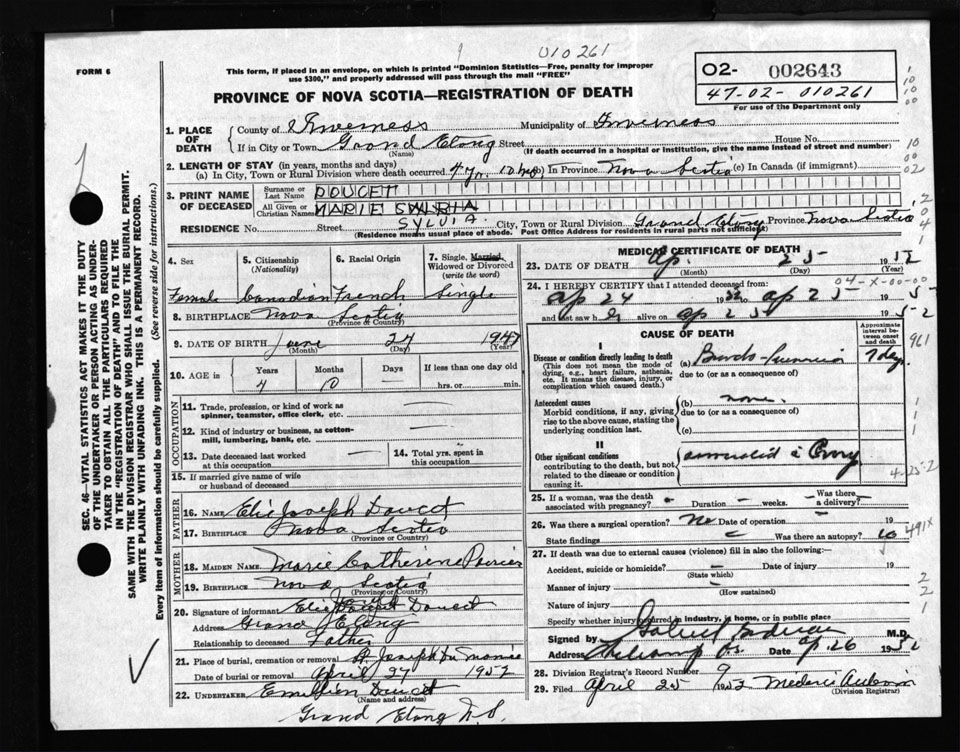 010261
FORM 6
This form, if placed in an envelope, on which is printed "Dominion Statistics—Free, penalty for improper
use $300," and properly addressed will pass through the mail "FREE"
02- 002643
47-02-010261
For use of the Department only
PROVINCE OF NOVA SCOTIA—REGISTRATION OF DEATH
1. PLACE OF DEATH
County of Inverness Municipality of Inverness
If in City or Town Grand Etang Street House No.
(Name) (If death occurred in a hospital or institution, give the name instead of street and number)
2. LENGTH OF STAY (in years, months and days)
(a) In City, Town or Rural Division where death occurred 4 yr. 10 mo (b) In Province Nova Scotia (c) In Canada (if immigrant)
3. PRINT NAME OF DECEASED
Surname or Last Name DOUCET
All Given or Christian Names MARIE SYLVIA
RESIDENCE No. Street City, Town or Rural Division Grand Etang Province Nova Scotia
(Residence means usual place of abode. Post Office Address for residents in rural parts not sufficient)
4. Sex Female
5. Citizenship (Nationality) Canadian
6. Racial Origin French
7. Single, Married, Widowed or Divorced (write the word) Single
8. BIRTHPLACE Nova Scotia
(Province or Country)
9. DATE OF BIRTH June 27 1947
(Month) (Day) (Year)
10. AGE in Years Months Days If less than one day old
4 10 — hrs. or min.
OCCUPATION
11. Trade, profession, or kind of work as spinner, teamster, office clerk, etc. —
12. Kind of industry or business, as cotton-mill, lumbering, bank, etc. —
13. Date deceased last worked at this occupation —
14. Total yrs. spent in this occupation
15. If married give name of wife or husband of deceased
FATHER
16. NAME Elie Joseph Doucet
17. BIRTHPLACE Nova Scotia
(Province or Country)
MOTHER
18. MAIDEN NAME Marie Catherine Poirier
19. BIRTHPLACE Nova Scotia
(Province or Country)
20. Signature of informant Elie Joseph Doucet
Address Grand Etang
Relationship to deceased Father
21. Place of burial, cremation or removal St Joseph du Moine
Date of burial or removal April 27 1952
22. UNDERTAKER Emilien Doucet
Grand Etang N.S.
MEDICAL CERTIFICATE OF DEATH
23. DATE OF DEATH Ap. 25 1952
(Month) (Day) (Year)
04-X-00-00
24. I HEREBY CERTIFY that I attended deceased from:
Ap 24 1952 to Ap 25 1952
and last saw her alive on Ap 25 1952
CAUSE OF DEATH
Approximate interval between onset and death
I
Disease or condition directly leading to death
(This does not mean the mode of dying, e.g., heart failure, asthenia, etc. It means the disease, injury, or complication which caused death.)
(a) 1 day
due to (or as a consequence of)
Antecedent causes
Morbid conditions, if any, giving rise to the above cause, stating the underlying condition last.
(b) none.
due to (or as a consequence of)
(c)
II
Other significant conditions
contributing to the death, but not related to the disease or condition causing it.
4-25-2
25. If a woman, was the death associated with pregnancy? — Duration — weeks. Was there a delivery? —
26. Was there a surgical operation? No Date of operation 19
State findings Was there an autopsy? no
491X
27. If death was due to external causes (violence) fill in also the following:—
Accident, suicide or homicide? — Date of injury 19
(State which)
Manner of injury —
(How sustained)
Nature of injury —
Specify whether injury occurred in industry, in home, or in public place
Signed by M.D.
Address Cheticamp Date Ap. 26 1952
28. Division Registrar's Record Number 9
29. Filed April 25 1952
(Division Registrar)
SEC. 46—VITAL STATISTICS ACT MAKES IT THE DUTY
OF THE UNDERTAKER OR PERSON ACTING AS UNDER-
TAKER TO OBTAIN ALL THE PARTICULARS REQUIRED
IN THE "REGISTRATION OF DEATH" AND TO FILE THE
SAME WITH THE DIVISION REGISTRAR WHO SHALL ISSUE THE BURIAL PERMIT.
WRITE PLAINLY WITH UNFADING INK. THIS IS A PERMANENT RECORD.
Every item of information should be carefully supplied. (See reverse side for instructions.)